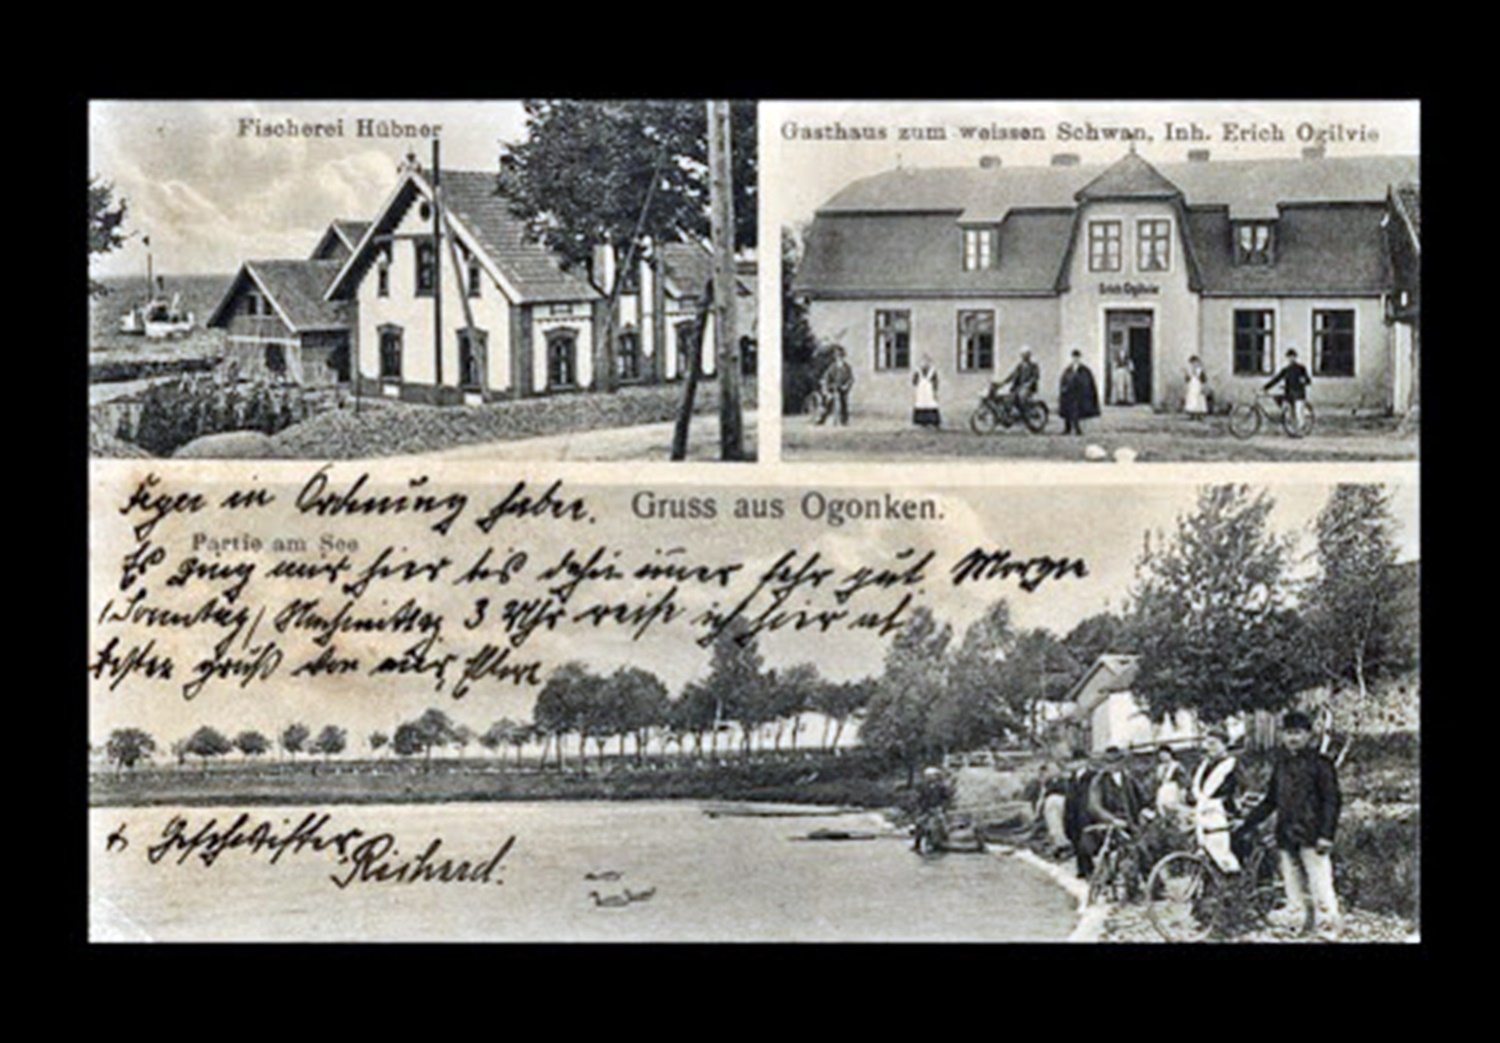 Fischerei Hübner
Gasthaus zum weissen Schwan, Inh. Erich Ogilvie
Erich Ogilvie
in Ordnung haben.
Gruss aus Ogonken.
Partie am See
Es ging mir hier bis dahin immer sehr gut. Morgen
/Sonntag/ Nachmittag 3 Uhr reise ich hier ab
besten Gruß von mir, Eltern
+ Geschwister
Richard.